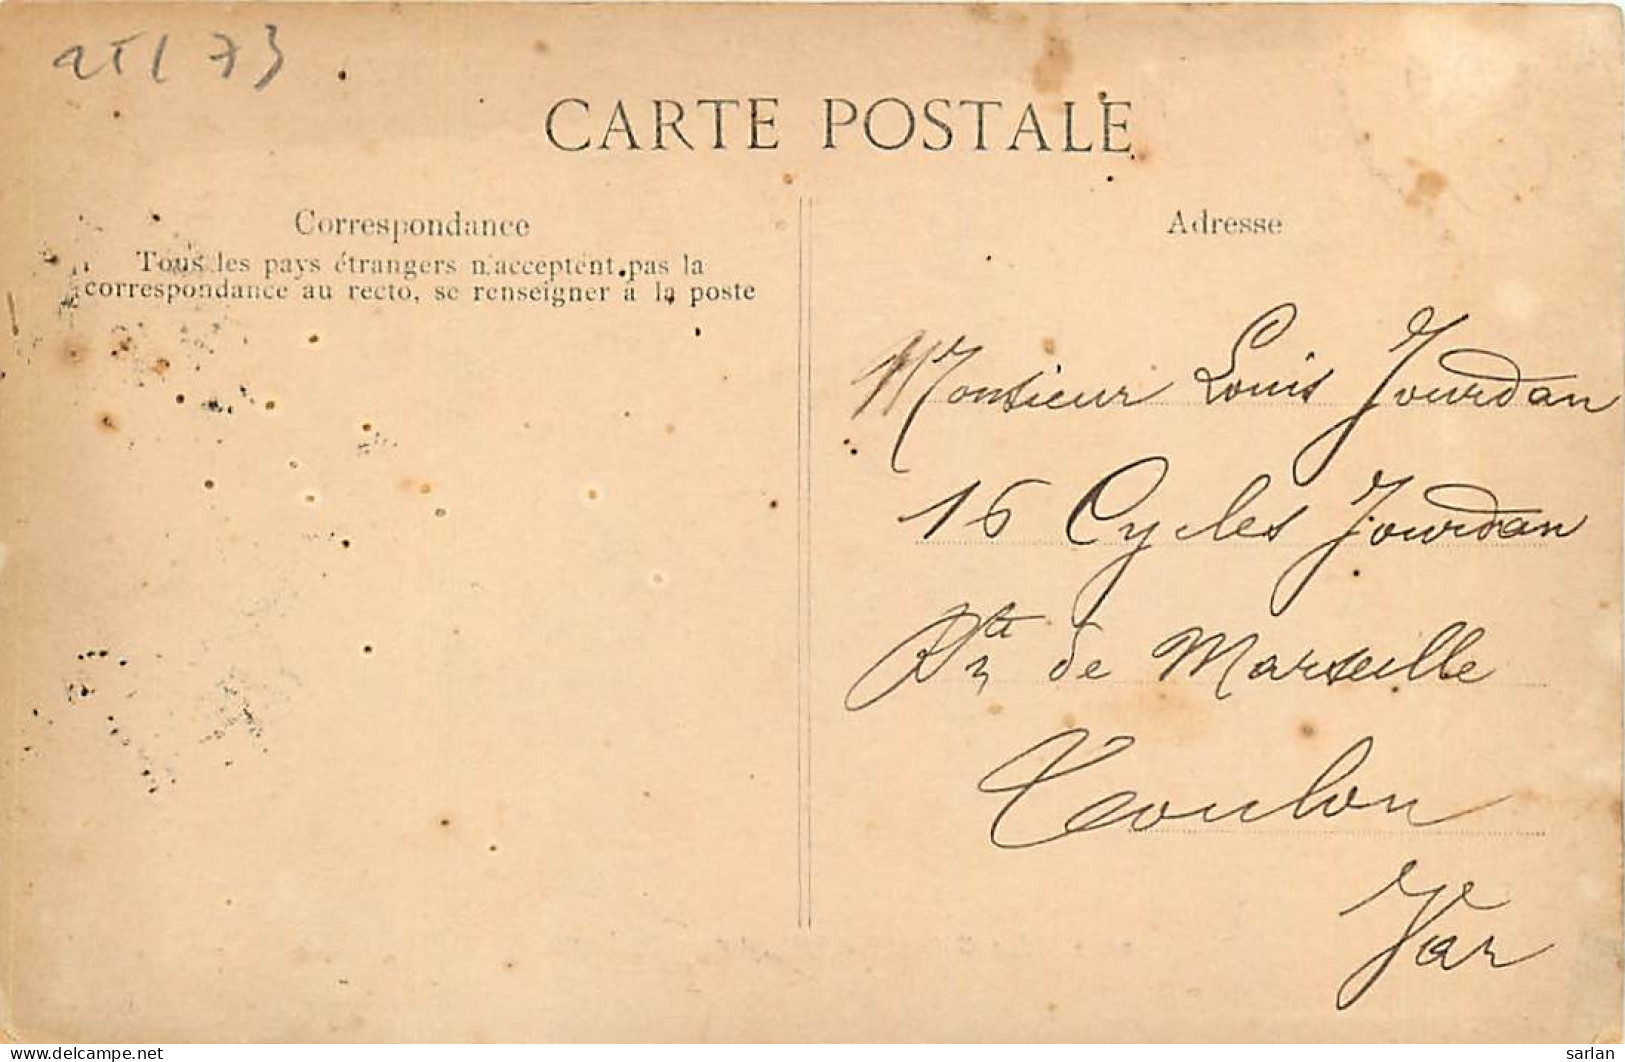 CARTE POSTALE
Correspondance
Tous les pays étrangers n'acceptent pas la
correspondance au recto, se renseigner à la poste
Adresse
Monsieur Louis Jourdan
16 Cycles Jourdan
Rte de Marseille
Toulon
Var
Delcampe.net
sarlan